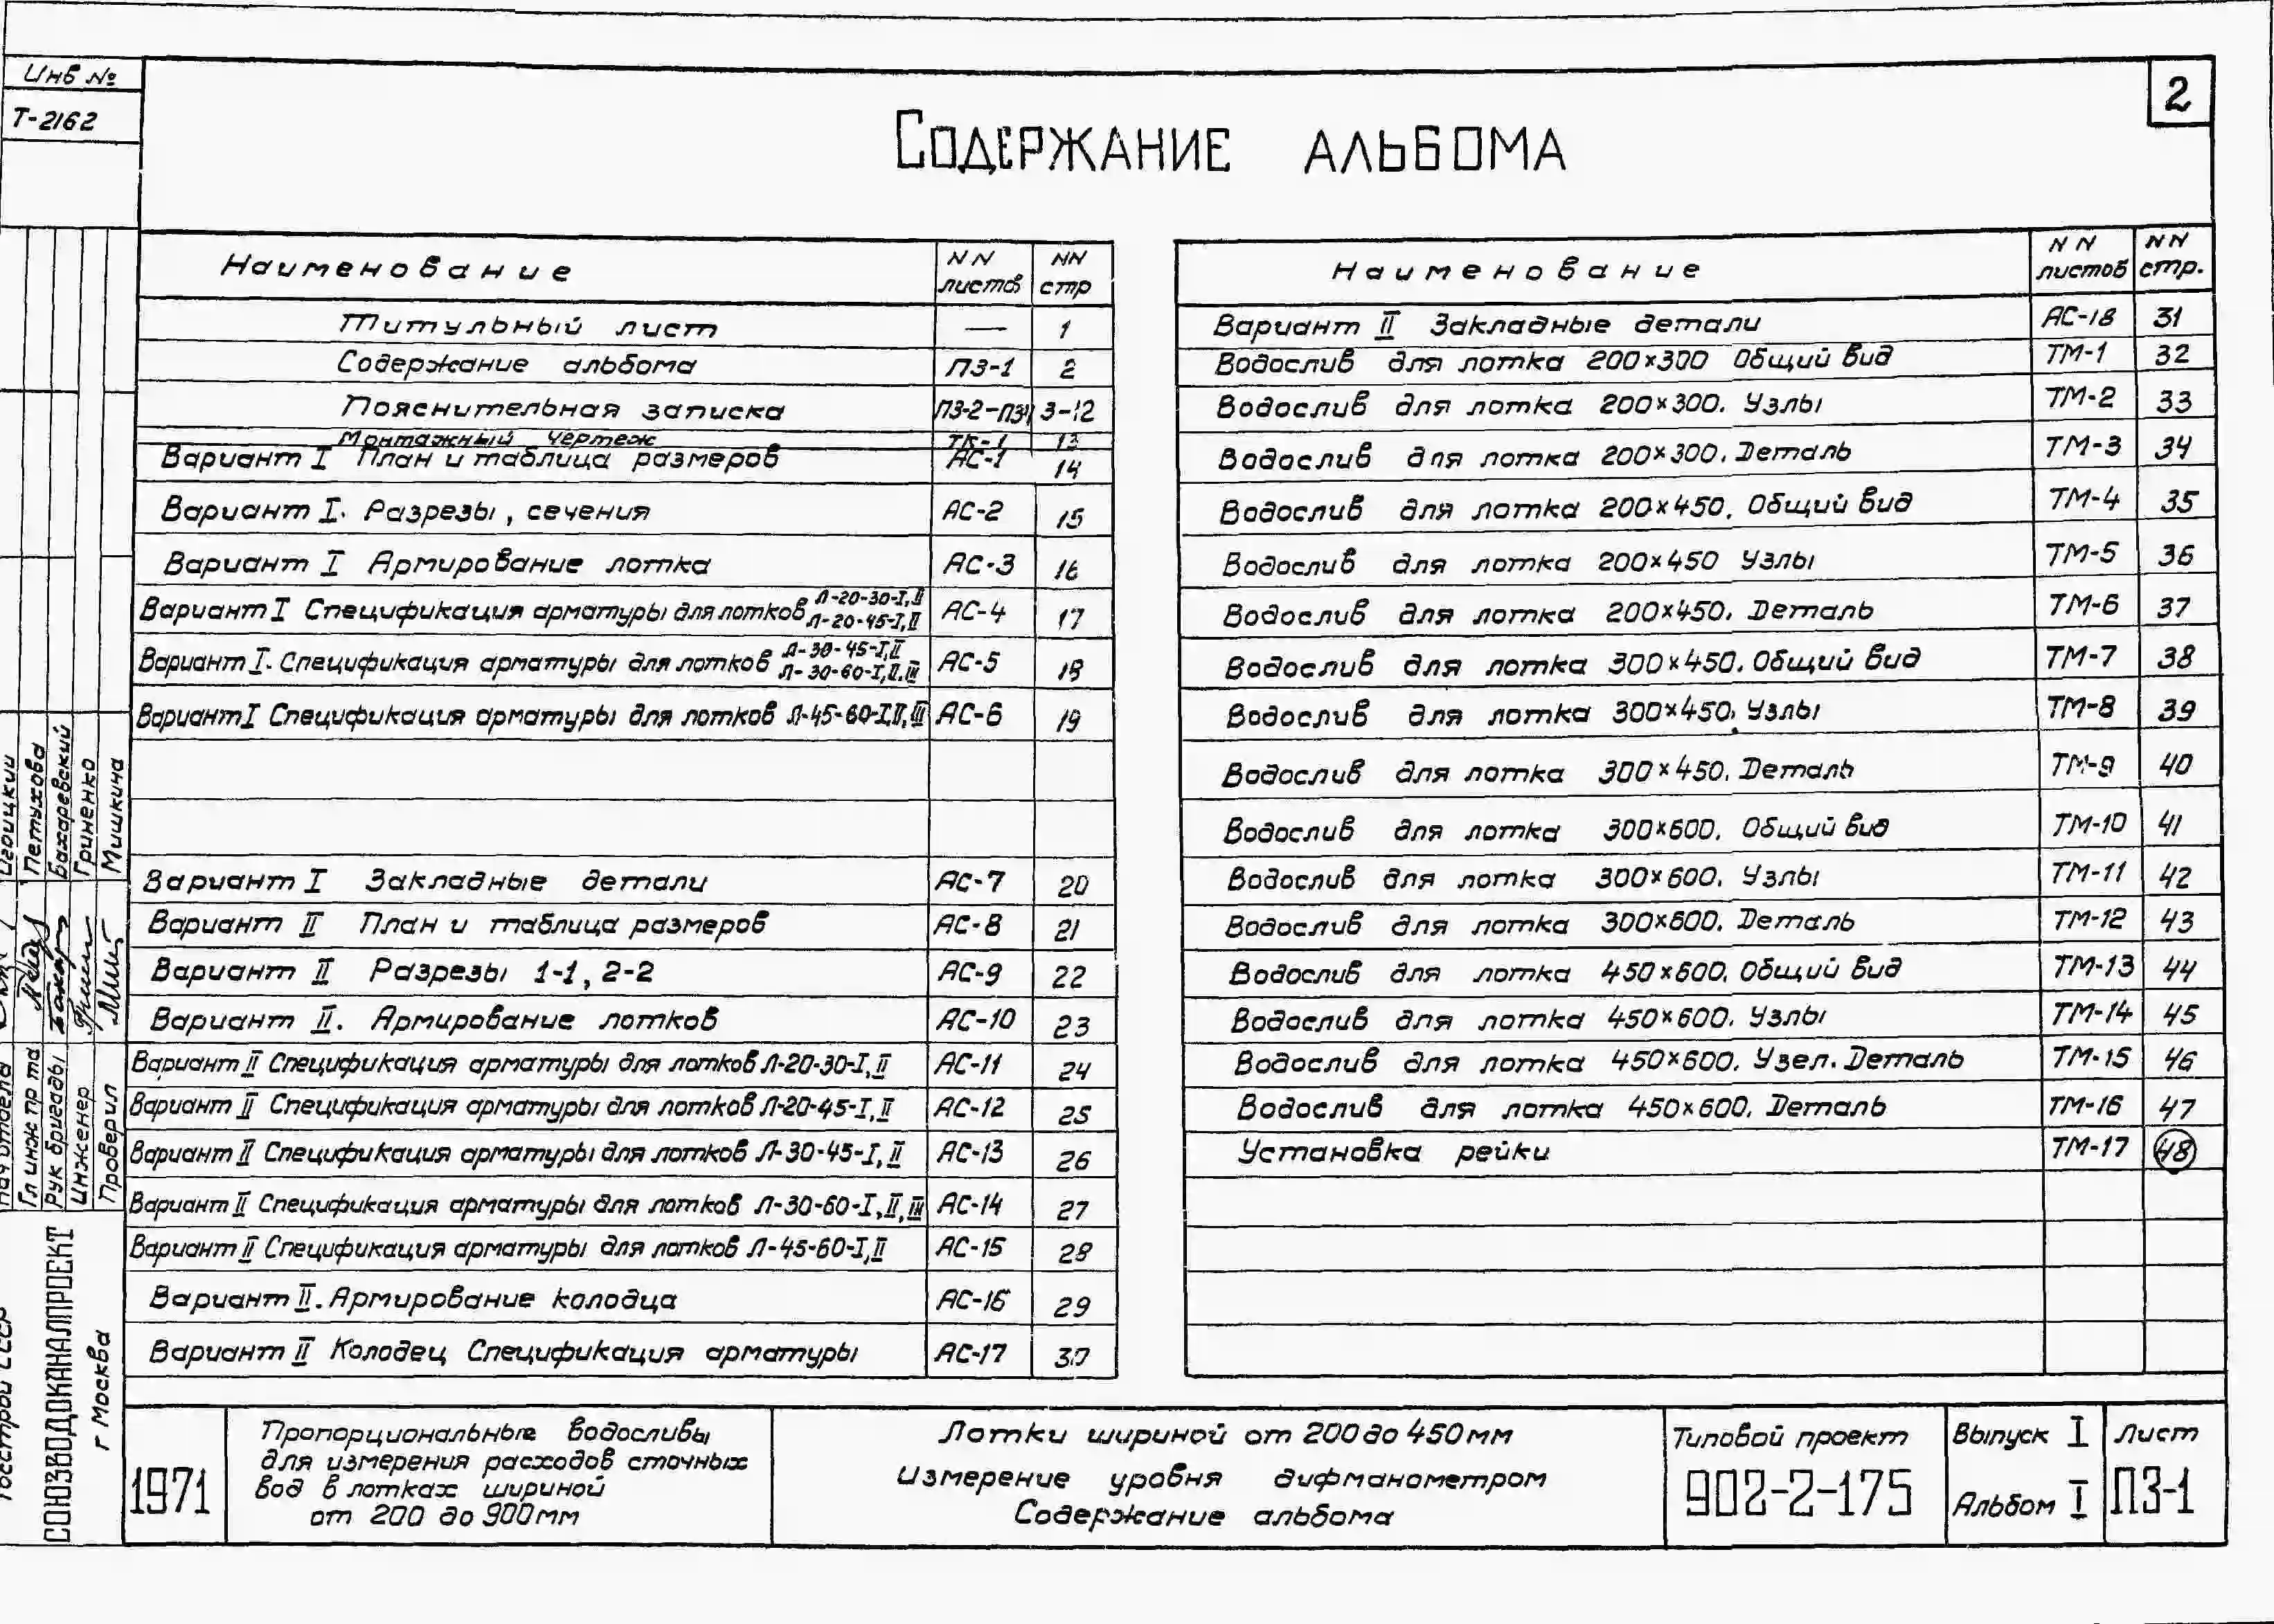 Инв №
Т-2162
2
Содержание альбома
Наименование NN листов NN стр
Титульный лист — 1
Содержание альбома ПЗ-1 2
Пояснительная записка ПЗ-2-ПЗ-11 3-12
Монтажный чертеж ТК-1 13
Вариант I План и таблица размеров АС-1 14
Вариант I. Разрезы, сечения АС-2 15
Вариант I Армирование лотка АС-3 16
Вариант I Спецификация арматуры для лотков Л-20-30-I,II Л-20-45-I,II АС-4 17
Вариант I. Спецификация арматуры для лотков Л-30-45-I,II Л-30-60-I,II.III АС-5 18
Вариант I Спецификация арматуры для лотков Л-45-60-I,II,III АС-6 19
Вариант I Закладные детали АС-7 20
Вариант II План и таблица размеров АС-8 21
Вариант II Разрезы 1-1, 2-2 АС-9 22
Вариант II. Армирование лотков АС-10 23
Вариант II Спецификация арматуры для лотков Л-20-30-I,II АС-11 24
Вариант II Спецификация арматуры для лотков Л-20-45-I,II АС-12 25
Вариант II Спецификация арматуры для лотков Л-30-45-I,II АС-13 26
Вариант II Спецификация арматуры для лотков Л-30-60-I,II,III АС-14 27
Вариант II Спецификация арматуры для лотков Л-45-60-I,II АС-15 28
Вариант II. Армирование колодца АС-16 29
Вариант II Колодец Спецификация арматуры АС-17 30
Наименование NN листов NN стр.
Вариант II Закладные детали АС-18 31
Водослив для лотка 200×300 Общий вид ТМ-1 32
Водослив для лотка 200×300. Узлы ТМ-2 33
Водослив для лотка 200×300. Деталь ТМ-3 34
Водослив для лотка 200×450. Общий вид ТМ-4 35
Водослив для лотка 200×450 Узлы ТМ-5 36
Водослив для лотка 200×450. Деталь ТМ-6 37
Водослив для лотка 300×450. Общий вид ТМ-7 38
Водослив для лотка 300×450. Узлы ТМ-8 39
Водослив для лотка 300×450. Деталь ТМ-9 40
Водослив для лотка 300×600. Общий вид ТМ-10 41
Водослив для лотка 300×600. Узлы ТМ-11 42
Водослив для лотка 300×600. Деталь ТМ-12 43
Водослив для лотка 450×600. Общий вид ТМ-13 44
Водослив для лотка 450×600. Узлы ТМ-14 45
Водослив для лотка 450×600. Узел. Деталь ТМ-15 46
Водослив для лотка 450×600. Деталь ТМ-16 47
Установка рейки ТМ-17 48
Петухова
Бахаревский
Гриненко
Мишкина
Нач отдела
Гл инж пр та
Рук бригады
Инженер
Проверил
Госстрой СССР
СОЮЗВОДОКАНАЛПРОЕКТ
г Москва
1971
Пропорциональные водосливы
для измерения расходов сточных
вод в лотках шириной
от 200 до 900мм
Лотки шириной от 200 до 450мм
Измерение уровня дифманометром
Содержание альбома
Типовой проект
902-2-175
Выпуск I
Альбом I
Лист
ПЗ-1